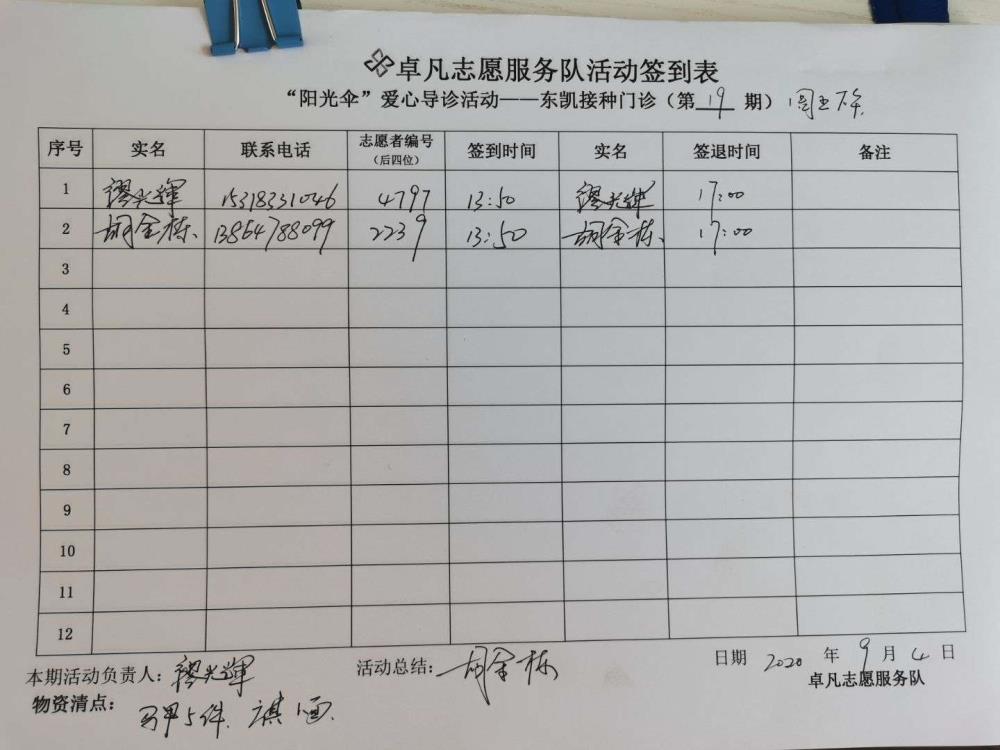 卓凡志愿服务队活动签到表
“阳光伞”爱心导诊活动——东凯接种门诊（第 19 期） 周五下午
序号 实名 联系电话 志愿者编号（后四位） 签到时间 实名 签退时间 备注
1 缪光辉 15318331046 4797 13:50 缪光辉 17:00
2 胡金栋、 13864788099 2239 13:50 胡金栋、 17:00
3
4
5
6
7
8
9
10
11
12
本期活动负责人：缪光辉 活动总结：胡金栋 日期 2020 年 9 月 4 日
卓凡志愿服务队
物资清点： 马甲5件. 旗1面.